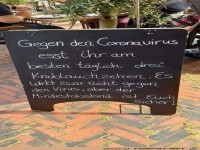 Gegen den Coronavirus
esst Ihr am
besten täglich drei
Knoblauchzehen. Es
wirkt zwar nicht gegen
den Virus, aber der
Mindestabstand ist Euch
sicher!